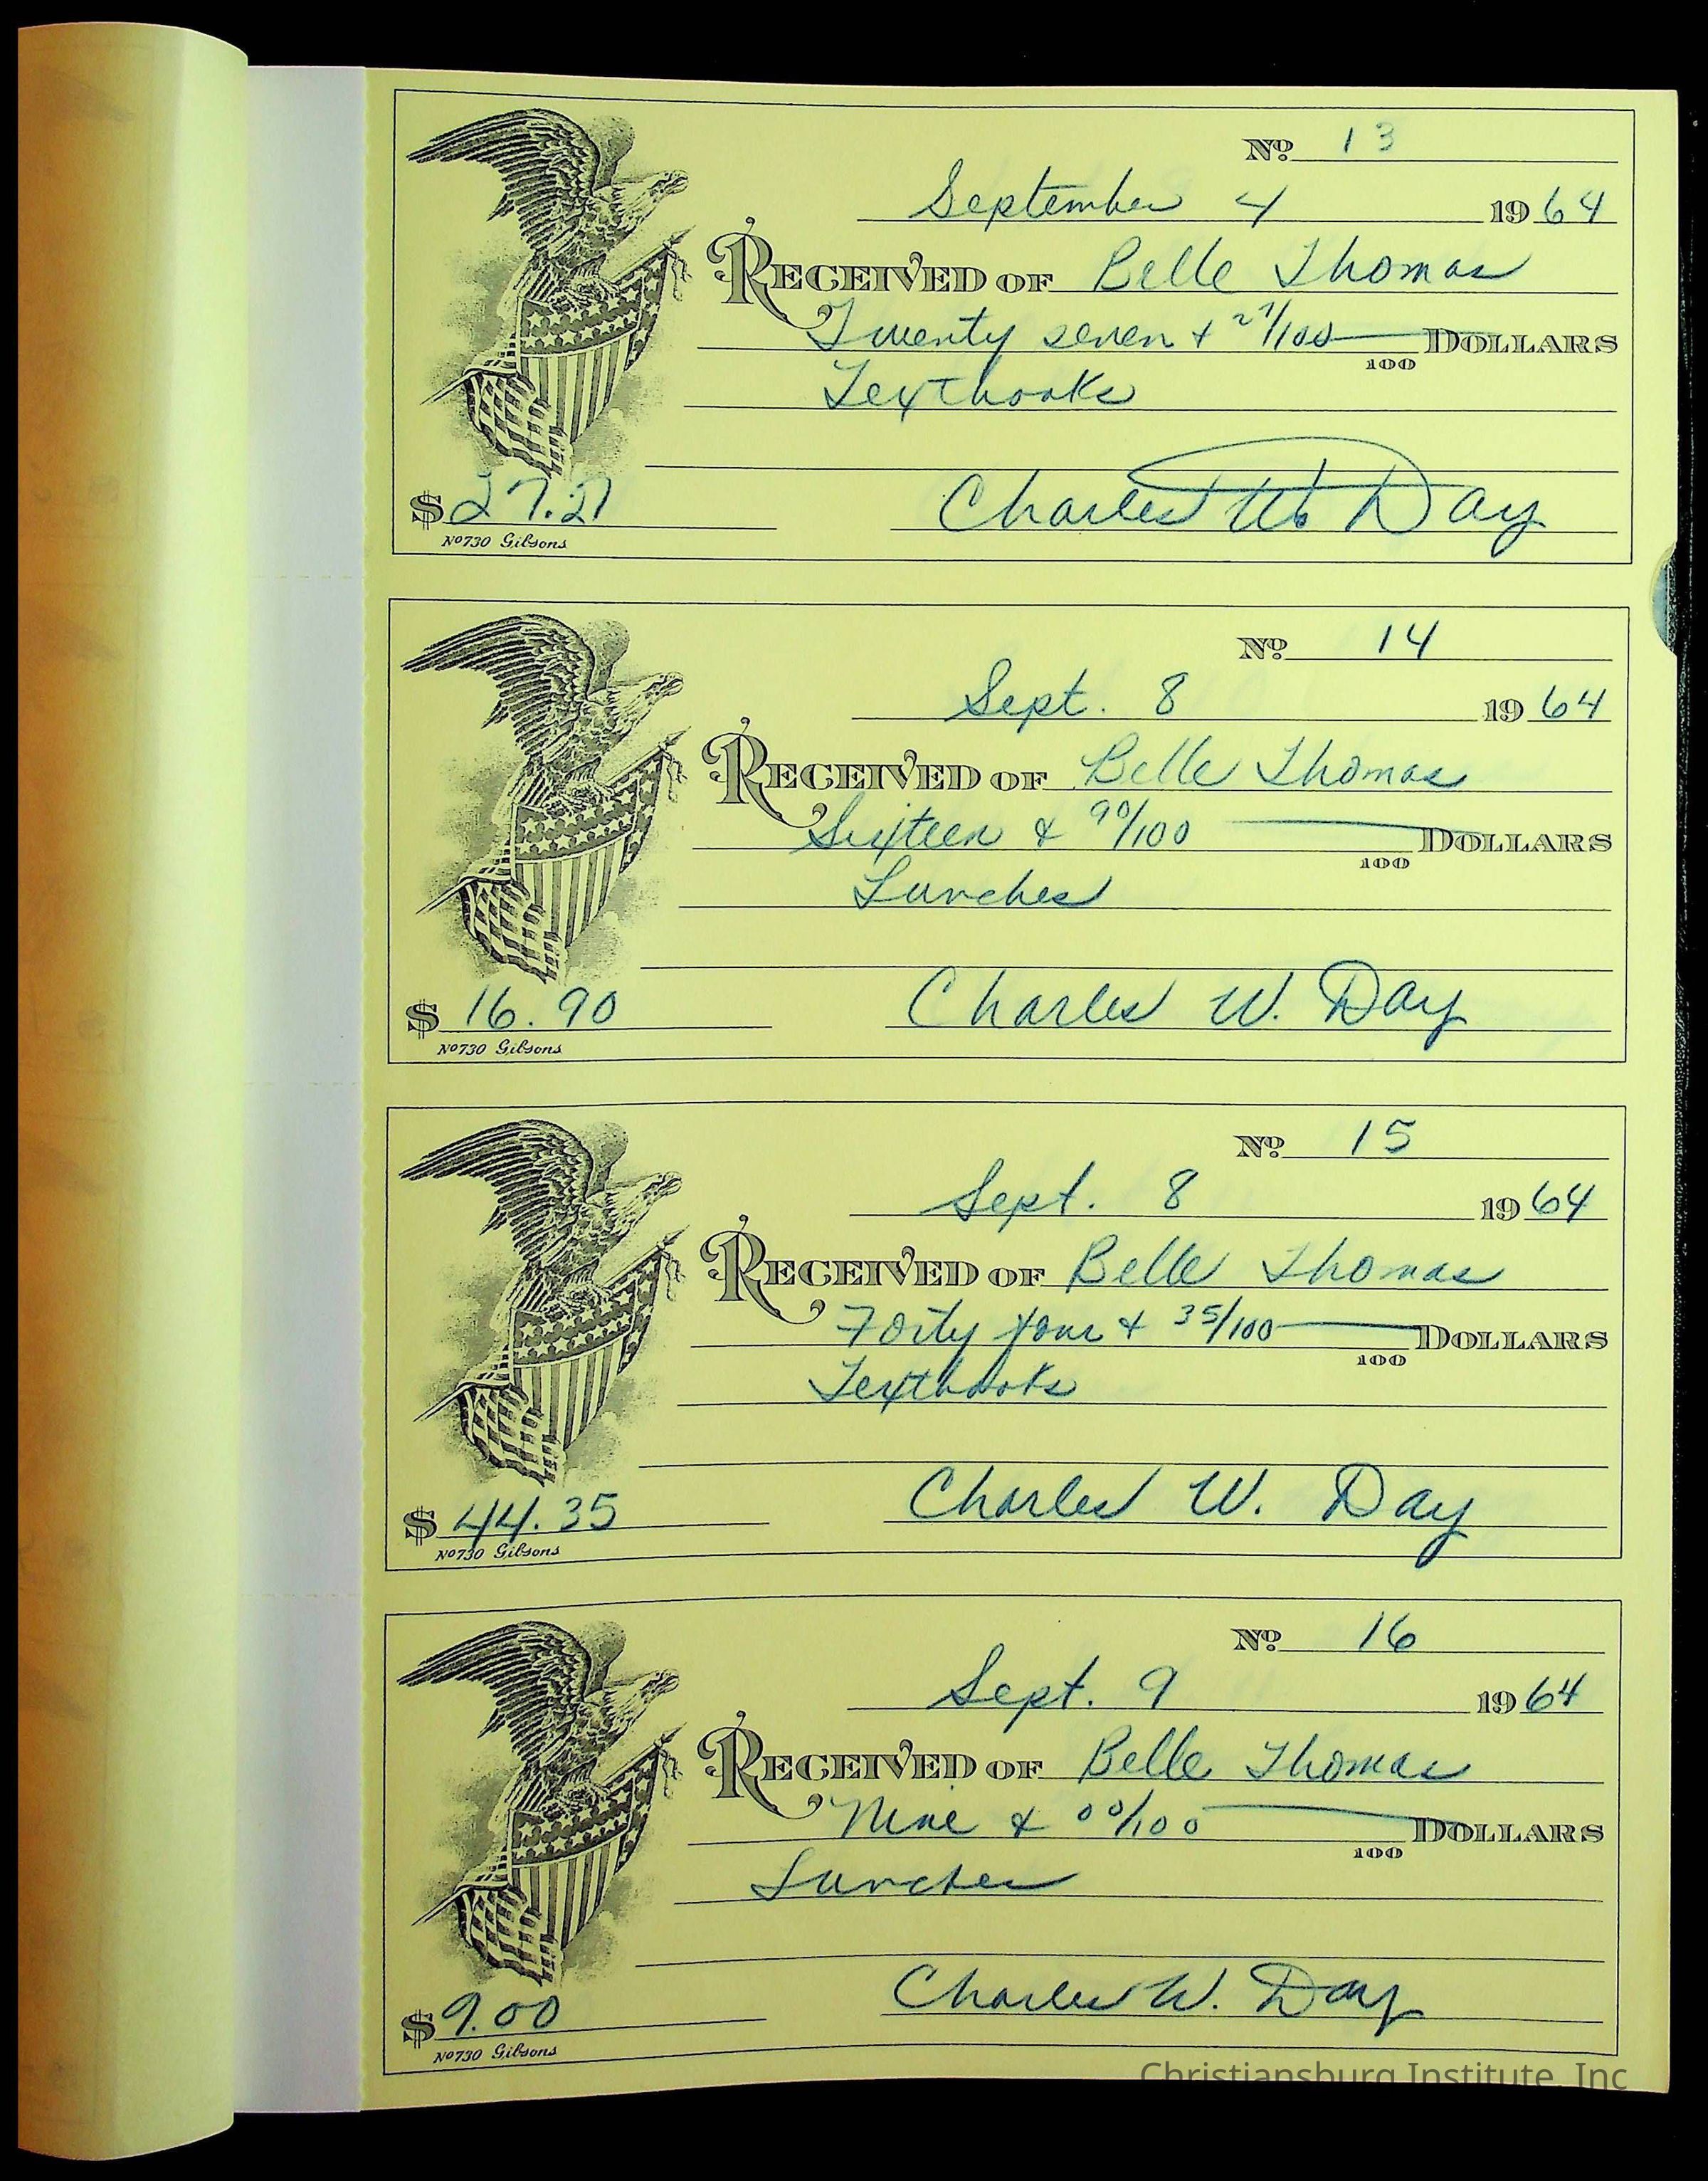 No. 13
September 4 1964
RECEIVED OF Belle Thomas
Twenty seven + 27/100 DOLLARS
100
Textbooks
$ 27.27 Charles W. Day
No 730 Gibsons
No. 14
Sept. 8 1964
RECEIVED OF Belle Thomas
Sixteen & 90/100 DOLLARS
100
Lunches
$ 16.90 Charles W. Day
No 730 Gibsons
No. 15
Sept. 8 1964
RECEIVED OF Belle Thomas
Forty four + 35/100 DOLLARS
100
Textbooks
$ 44.35 Charles W. Day
No 730 Gibsons
No. 16
Sept. 9 1964
RECEIVED OF Belle Thomas
Nine & 00/100 DOLLARS
100
Lunches
$ 9.00 Charles W. Day
No 730 Gibsons
Christiansburg Institute, Inc